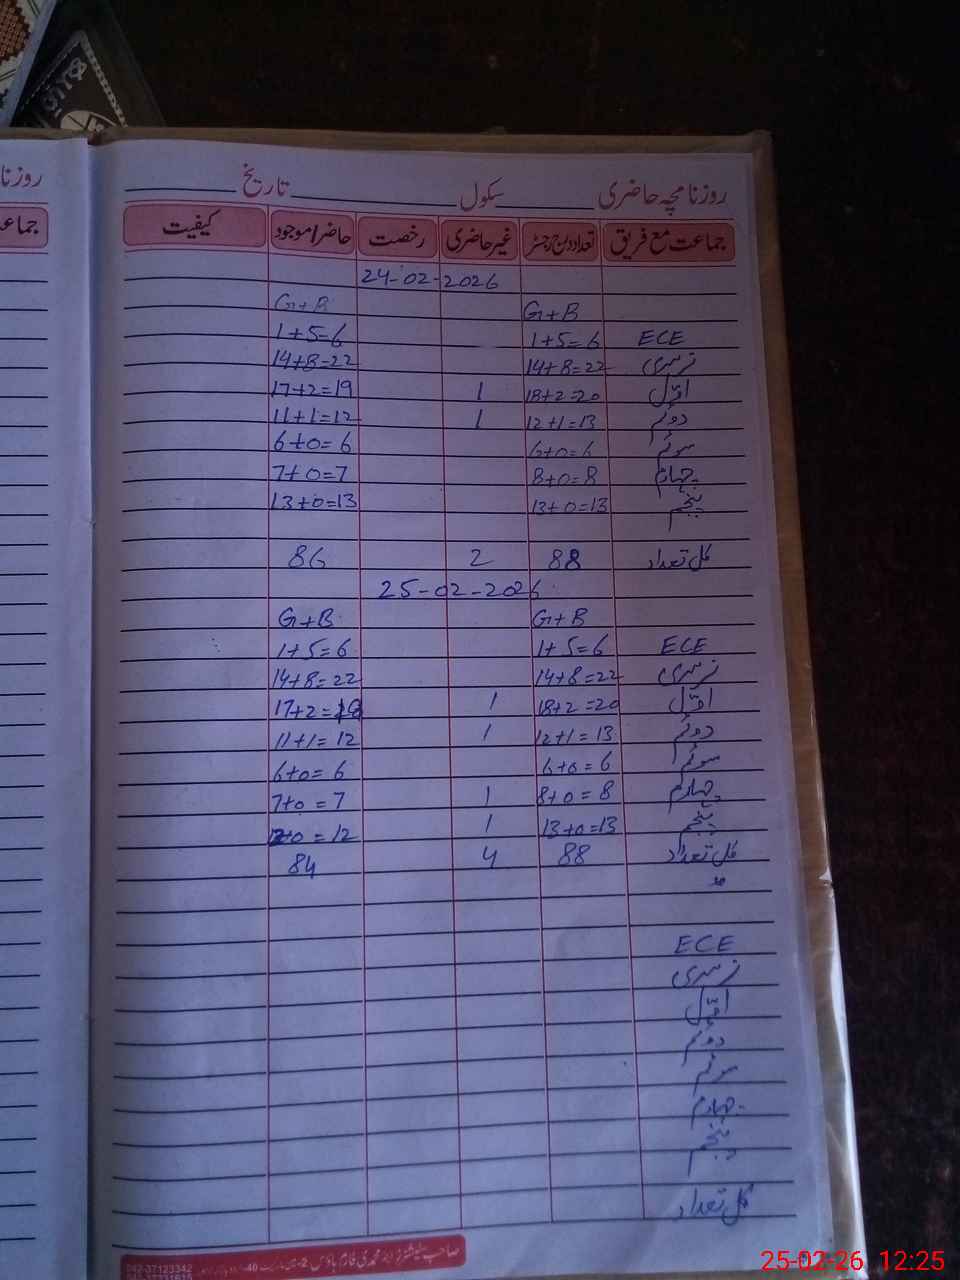 روزنامچہ حاضری ______ سکول ______ تاریخ ______
جماعت مع فریق تعداد درج رجسٹر غیر حاضری رخصت حاضر/موجود کیفیت
24-02-2026
G+B G+B
ECE 1+5=6 1+5=6
نرسری 14+8=22 14+8=22
اوّل 18+2=20 1 17+2=19
دوئم 12+1=13 1 11+1=12
سوئم 6+0=6 6+0=6
چہارم 8+0=8 7+0=7
پنجم 13+0=13 13+0=13
کل تعداد 88 2 86
25-02-2026
G+B G+B
ECE 1+5=6 1+5=6
نرسری 14+8=22 14+8=22
اوّل 18+2=20 1 17+2=
دوئم 12+1=13 1 11+1=12
سوئم 6+0=6 6+0=6
چہارم 8+0=8 1 7+0=7
پنجم 13+0=13 1 12+0=12
کل تعداد 88 4 84
ECE
نرسری
اوّل
دوئم
سوئم
چہارم
پنجم
کل تعداد
042-37123342
روزنا
جماعـ
25-02-26 12:25